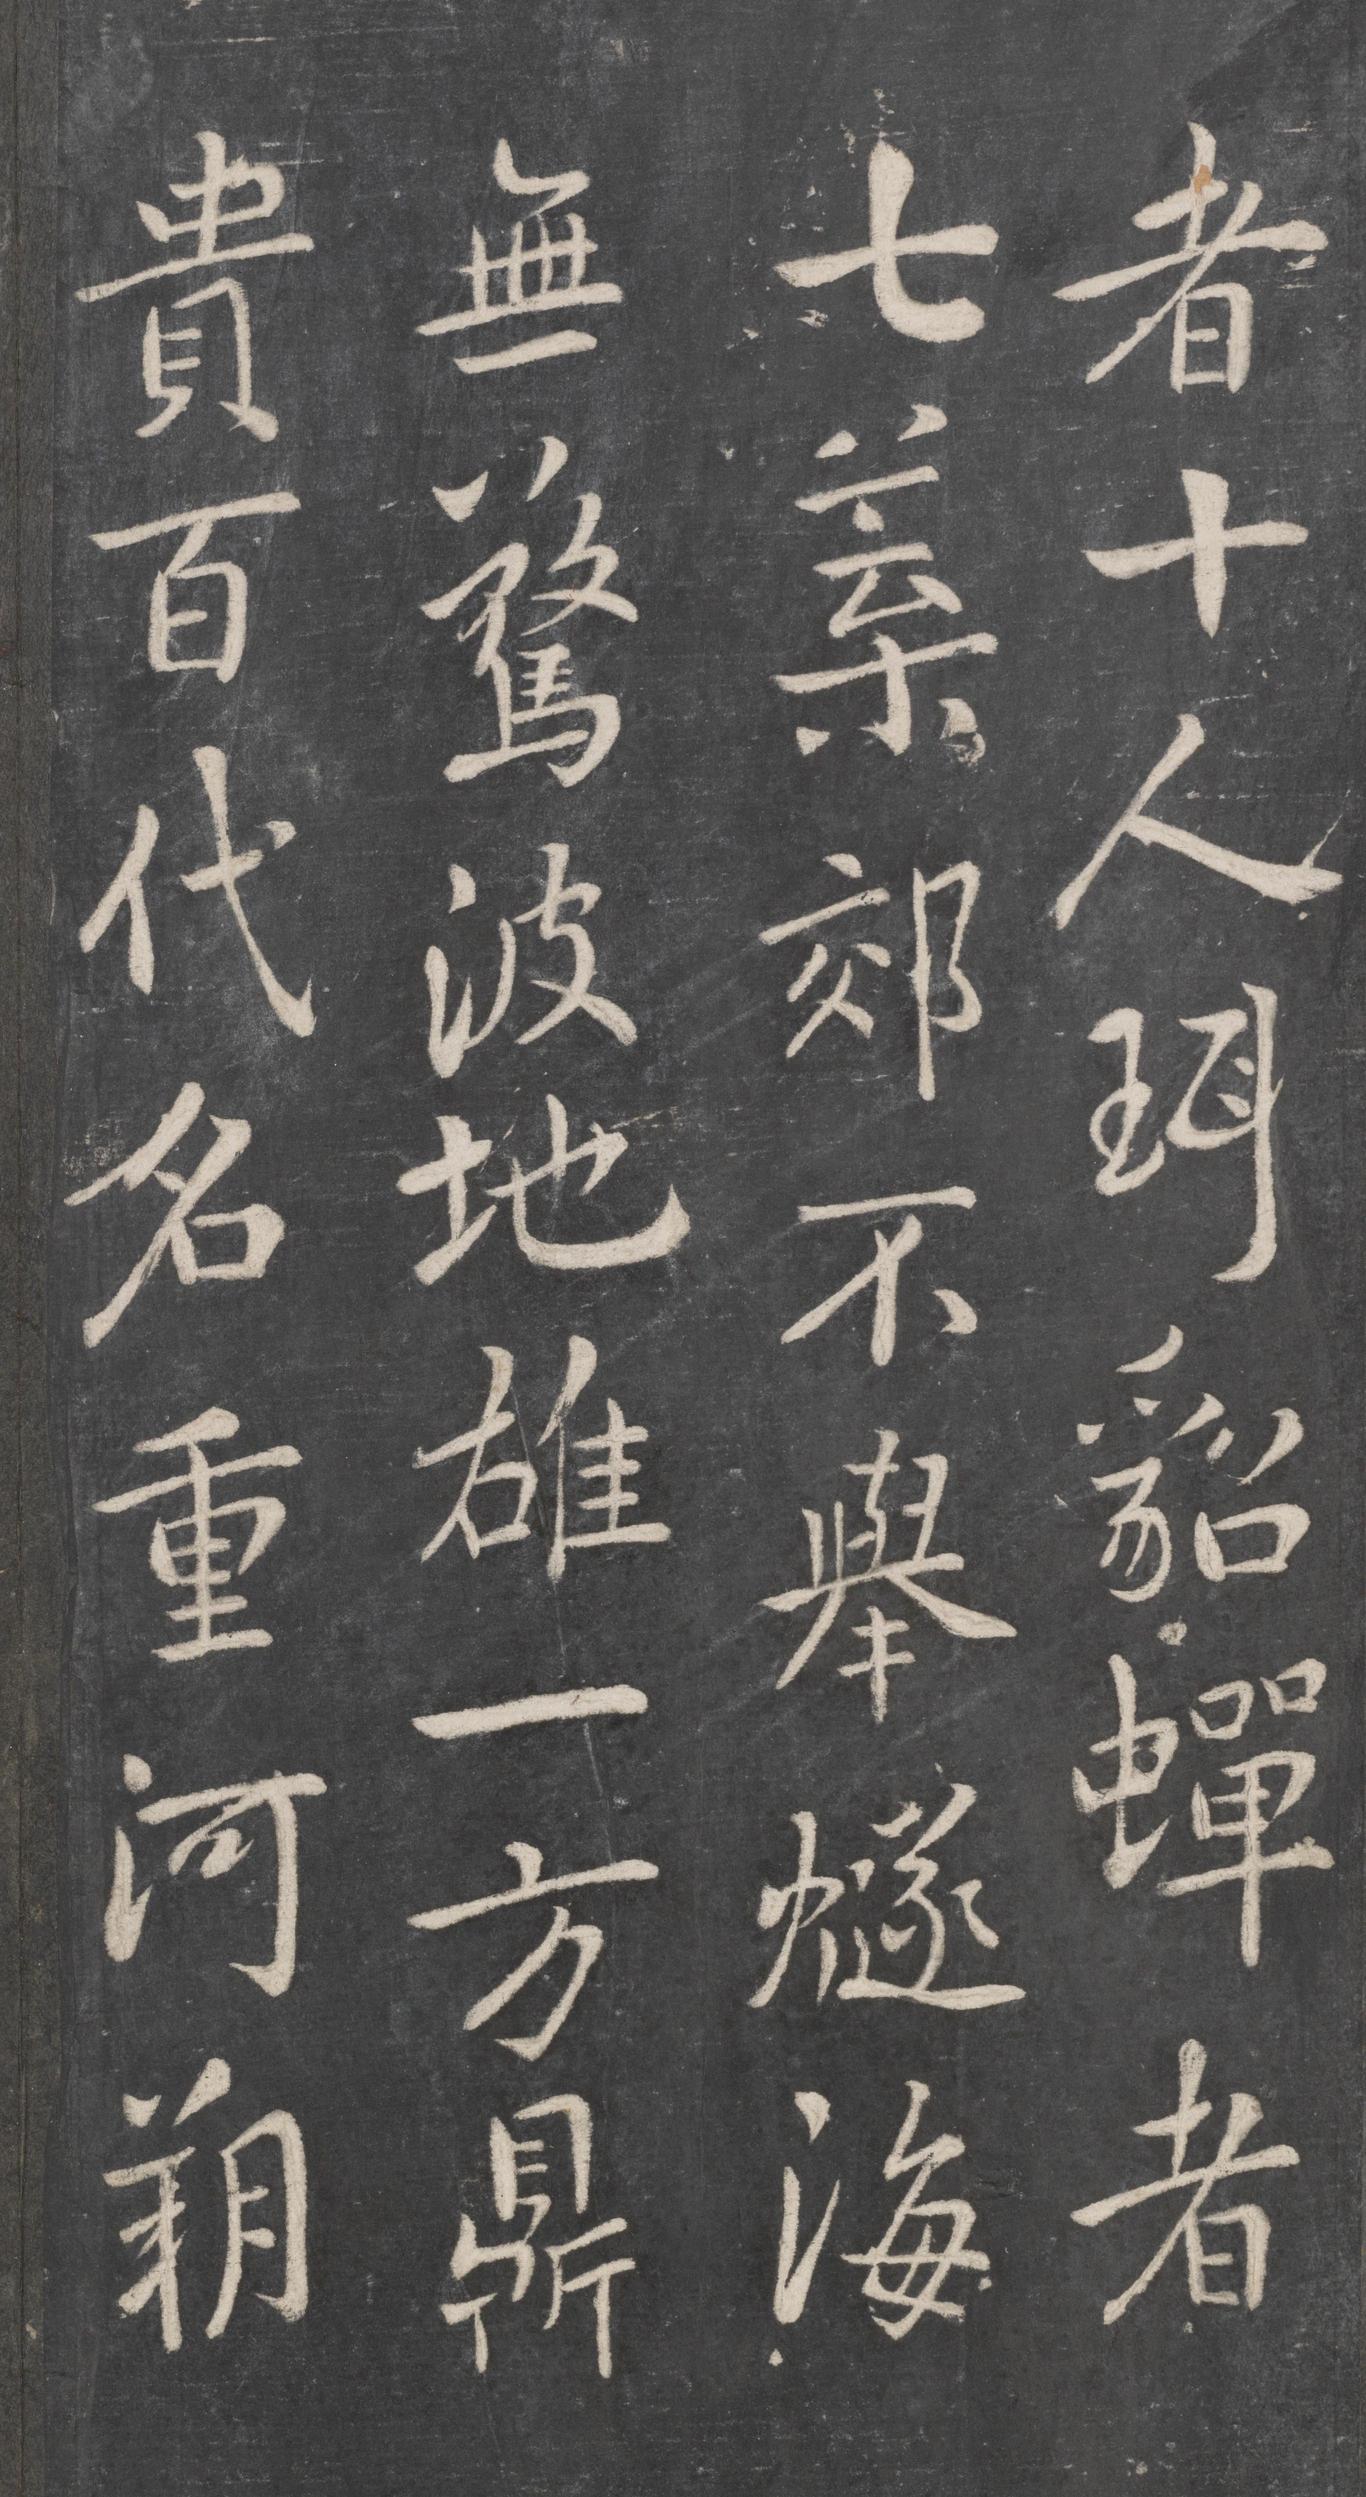 者十人珥貂蟬者
七葉郊不舉燧海
無驚波地雄一方鼎
貴百代名重河朔